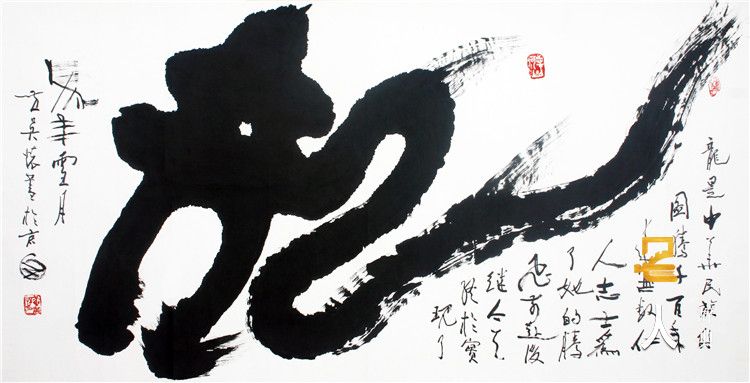 龍
龍是中华民族
圖騰千百年
無數仁
人志士爲
了她的騰
飛前赴後
繼今天
終於實
現了
年雪月
於京